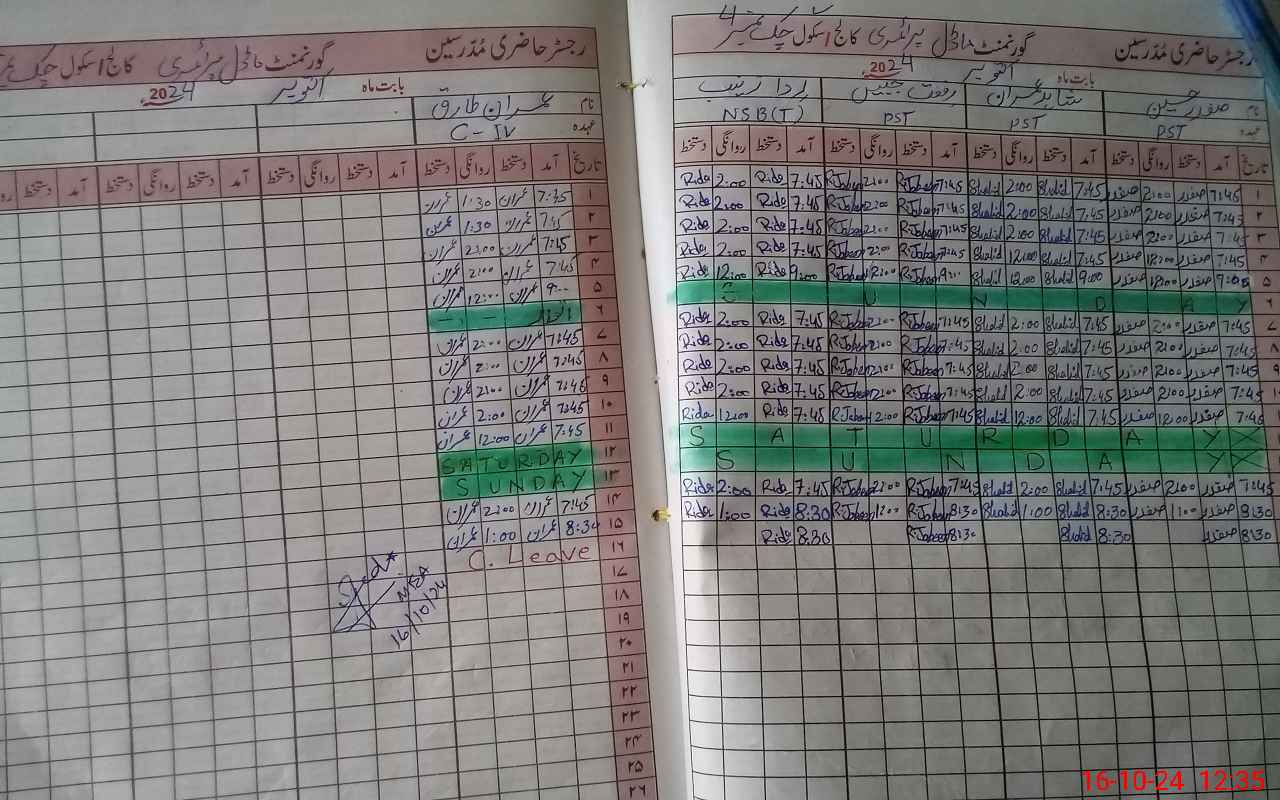 رجسٹر حاضری مُدرسین گورنمنٹ ماڈل پرائمری کالج/سکول چک نمبر 4
بابت ماہ اکتوبر 2024ء
نام صفدر حسین شاہد عمران رفعت جبیں ردا زینب
عہدہ PST PST PST NSB(T)
تاریخ آمد دستخط روانگی دستخط آمد دستخط روانگی دستخط آمد دستخط روانگی دستخط آمد دستخط روانگی دستخط
7:45 صفدر 2:00 صفدر 7:45 Shahid 2:00 Shahid 7:45 R.Jabeen 2:00 R.Jabeen 7:45 Rida 2:00 Rida
7:45 صفدر 2:00 صفدر 7:45 Shahid 2:00 Shahid 7:45 R.Jabeen 2:00 R.Jabeen 7:45 Rida 2:00 Rida
7:45 صفدر 2:00 صفدر 7:45 Shahid 2:00 Shahid 7:45 R.Jabeen 2:00 R.Jabeen 7:45 Rida 2:00 Rida
7:45 صفدر 12:00 صفدر 7:45 Shahid 12:00 Shahid 7:45 R.Jabeen 2:00 R.Jabeen 7:45 Rida 2:00 Rida
صفدر 12:00 صفدر 9:00 Shahid 12:00 Shahid 9:00 R.Jabeen 12:00 R.Jabeen 9:00 Rida 12:00 Rida
S U N D A Y
7:45 صفدر 2:00 صفدر 7:45 Shahid 2:00 Shahid 7:45 R.Jabeen 2:00 R.Jabeen 7:45 Rida 2:00 Rida
7:45 صفدر 2:00 صفدر 7:45 Shahid 2:00 Shahid 7:45 R.Jabeen 2:00 R.Jabeen 7:45 Rida 2:00 Rida
7:45 صفدر 2:00 صفدر 7:45 Shahid 2:00 Shahid 7:45 R.Jabeen 2:00 R.Jabeen 7:45 Rida 2:00 Rida
7:45 صفدر 2:00 صفدر 7:45 Shahid 2:00 Shahid 7:45 R.Jabeen 2:00 R.Jabeen 7:45 Rida 2:00 Rida
7:45 صفدر 12:00 صفدر 7:45 Shahid 12:00 Shahid 7:45 R.Jabeen 12:00 R.Jabeen 7:45 Rida 12:00 Rida
S A T U R D A Y
S U N D A Y
7:45 صفدر 2:00 صفدر 7:45 Shahid 2:00 Shahid 7:45 R.Jabeen 2:00 R.Jabeen 7:45 Rida 2:00 Rida
8:30 صفدر 1:00 صفدر 8:30 Shahid 1:00 Shahid 8:30 R.Jabeen 1:00 R.Jabeen 8:30 Rida 1:00 Rida
8:30 صفدر 8:30 Shahid 8:30 R.Jabeen 8:30 Rida
رجسٹر حاضری مُدرسین گورنمنٹ ماڈل پرائمری کالج/سکول چک
بابت ماہ اکتوبر 2024ء
نام عمران طارق
عہدہ C-IV
تاریخ آمد دستخط روانگی دستخط آمد دستخط روانگی دستخط آمد دستخط روانگی دستخط
۱ 7:45 عمران 1:30 عمران
۲ 7:45 عمران 1:30 عمران
۳ 7:45 عمران 2:00 عمران
۴ 7:45 عمران 2:00 عمران
۵ 9:00 عمران 12:00 عمران
۶ اتوار
۷ 7:45 عمران 2:00 عمران
۸ 7:45 عمران 2:00 عمران
۹ 7:45 عمران 2:00 عمران
۱۰ 7:45 عمران 2:00 عمران
۱۱ 7:45 عمران 12:00 عمران
۱۲ SATURDAY
۱۳ SUNDAY
۱۴ 7:45 عمران 2:00 عمران
۱۵ 8:30 عمران 1:00 عمران
۱۶ C. Leave
۱۷
۱۸
۱۹
۲۰
۲۱
۲۲
۲۳
۲۴
۲۵
۲۶
MEA
16/10/24
16-10-24 12:35